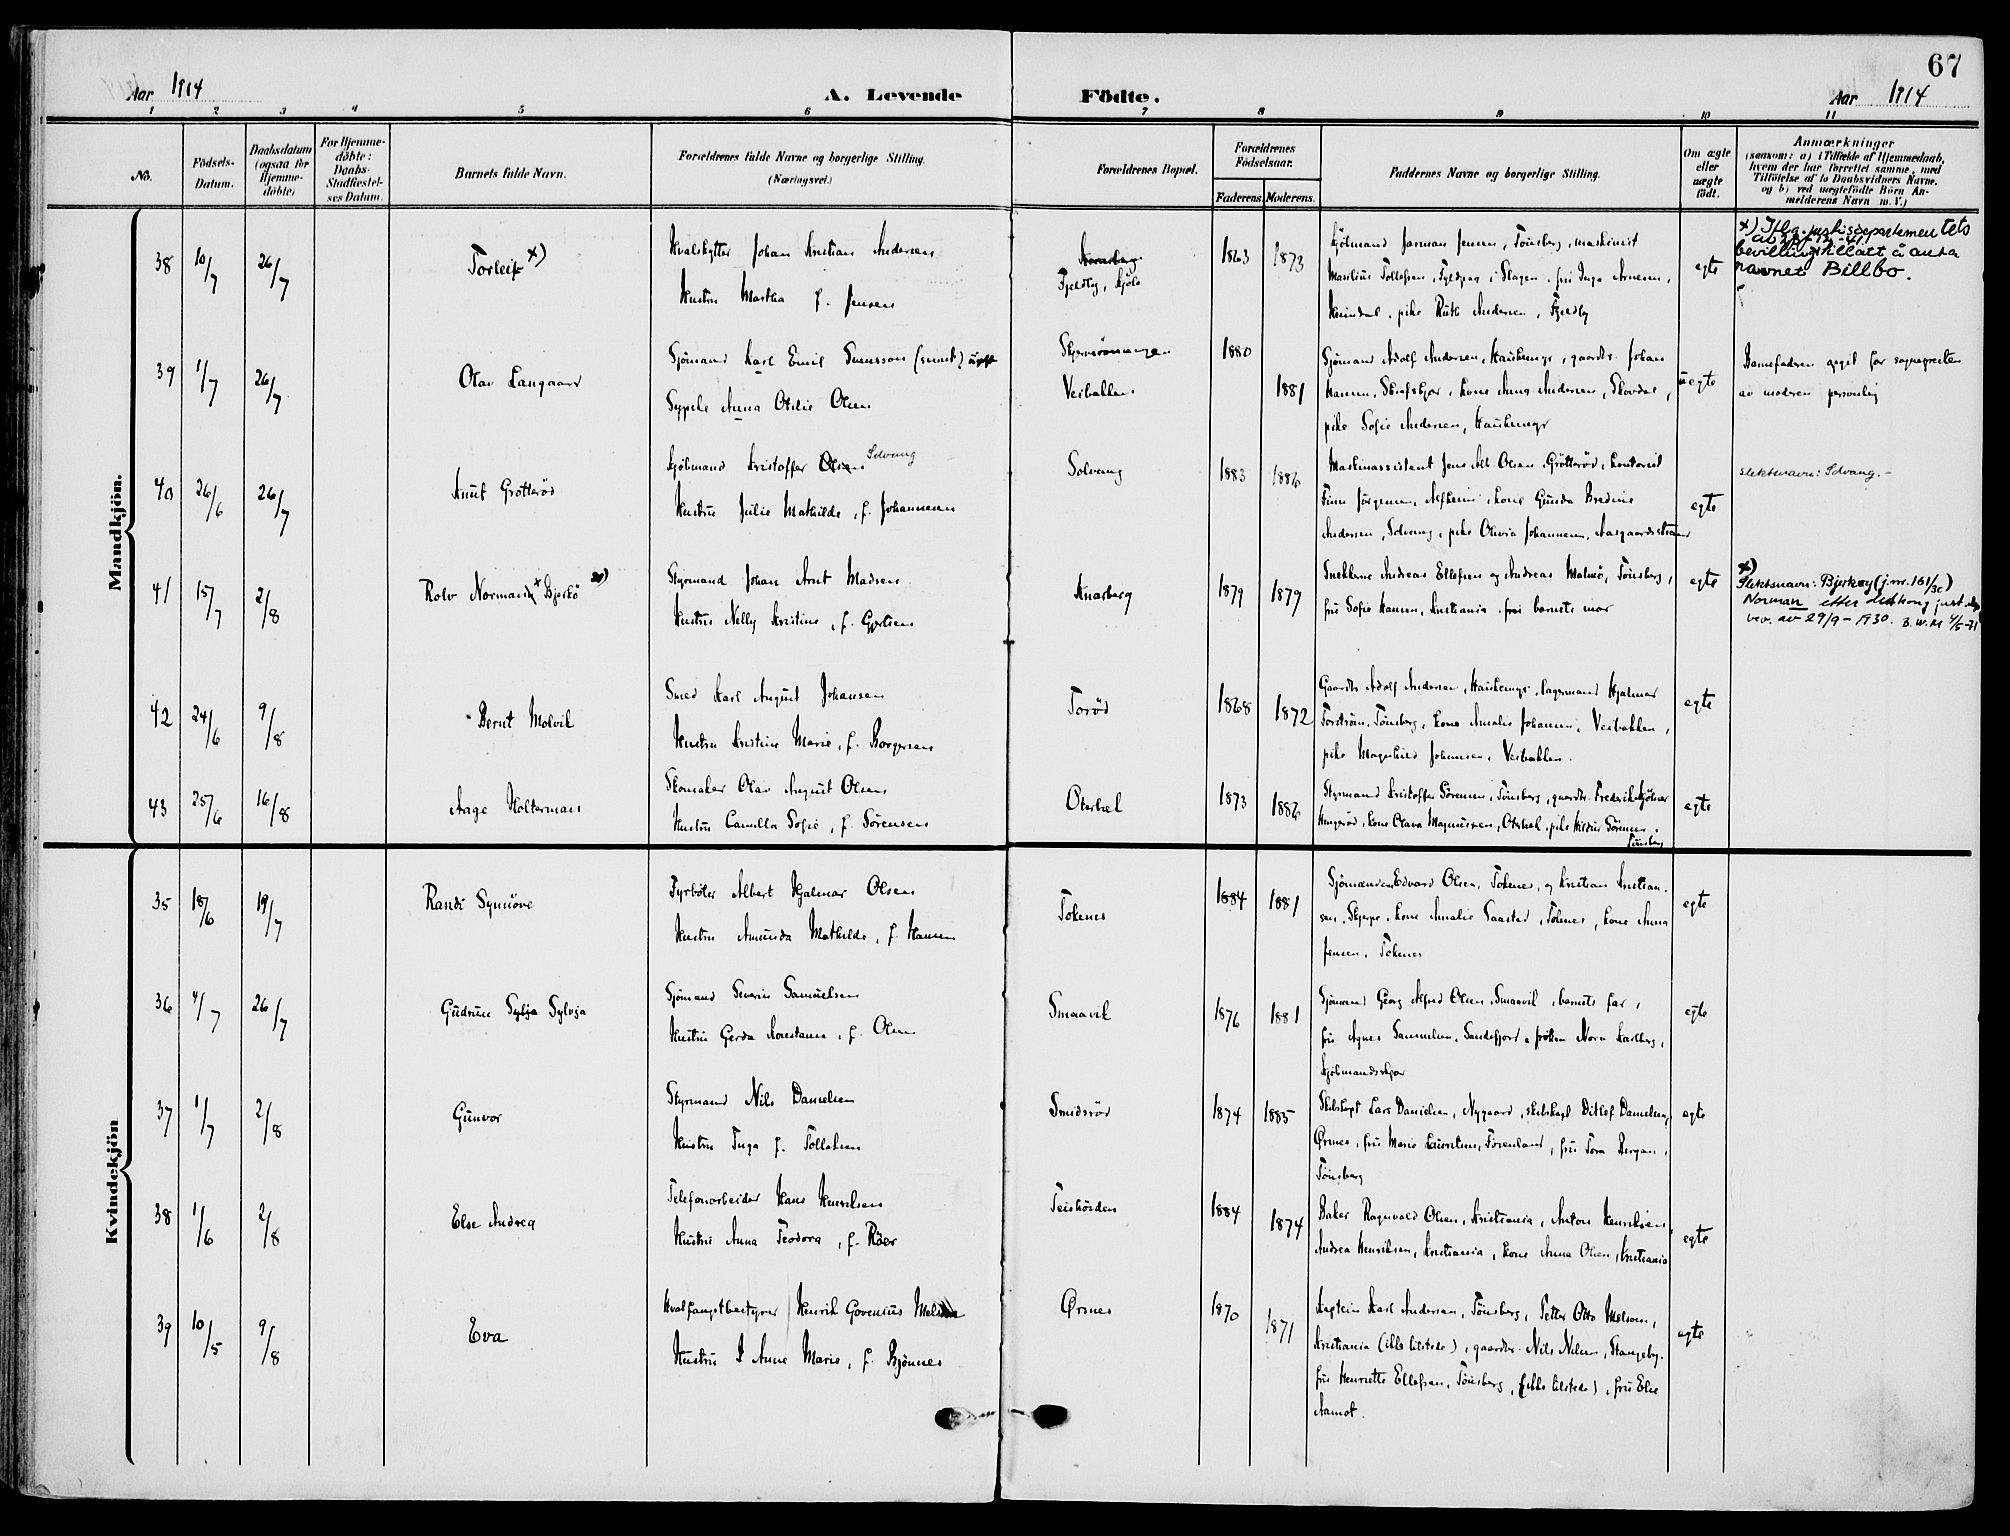 67
Aar 1914
A. Levende Födte.
Aar 1914
1 2 3 4 5 6 7 8 9 10 11
No.
Födsels-Datum.
Daabsdatum (ogsaa for Hjemme-döbte)
For Hjemme-döbte: Daabs-Stadfæstel-ses Datum.
Barnets fulde Navn.
Forældrenes fulde Navne og borgerlige Stilling. (Næringsvei.)
Forældrenes Bopæl.
Forældrenes Födselsaar.
Faderens. Moderens.
Faddernes Navne og borgerlige Stilling.
Om ægte eller uægte födt.
Anmærkninger
(saasom: a) i Tilfælde af Hjemmedaab, hvem der har forrettet samme, med Tilföielse af to Daabsvidners Navne, og b) ved uægtefödte Börn An-melderens Navn m. V.)
Mandkjön.
38 10/7 26/7 Torleif x)
Hvalskytter Johan Kristian Andersen
Hustru Martha f. Jensen
Fjeldby, Kjölö
1863 1873
Kjölmand Jarman Jensen, Tönsberg, maskinist
Marilius Tollefsen, i Slagen, fru Inga Arnesen,
pike Ruth Andersen, Fjeldby
egte
x) Iflg. justisdepartementets
bevilling tillatt å anta
navnet Billbo.
39 1/7 26/7 Olav Langaard
Sjömand Karl Emil Svensson (svensk) ugift
Sypike Anna Otilie Olsen
Veibakken
1880 1881
Sjömand Adolf Andersen, Haukemyr, gaardbr. Johan
Hansen, kone Anna Andersen, Skovdal,
pike Sofie Andersen, Haukemyr
uegte
Barnefaderen opgit for sognepresten
av moderen personlig
40 26/6 26/7 Knut Grötteröd
Kjölmand Kristoffer Olsen Solvang
Hustru Julie Mathilde, f. Johannesen
Solvang
1883 1886
Maskinassistent Jens Alb. Olsen, Grötteröd, kontorist
Finn Jörgensen, kone Gunda Bredine
Andersen, Solvang, pike Olivia Johannesen, Aasgaardsstrand
egte
slektsnavn: Solvang.-
41 15/7 2/8 Rolv Normann x Bjerkö x)
Styrmand Johan Arnt Madsen
Hustru Nelly Kristine, f. Gjertsen
Knarberg
1879 1879
Snekkerne Andreas Ellefsen og Andreas Malmö, Tönsberg,
fru Sofie Hansen, Kristiania, barnets mor
egte
x)
Slektsnavn: Bjerkøy (j.nr. 161/30)
Norman etter
bev. av 29/9-1930. B.W.M 4/5-71
42 24/6 9/8 Bernt Molvik
Smed Karl August Johansen
Hustru Kristine Marie, f. Borgersen
Toröd
1868 1872
Gaardbr. Adolf Andersen, Haukemyr, lagermand Hjalmar
Forström, Tönsberg, kone Amalie Johansen, Veibakken,
pike Magnhild Johansen, Veibakken.
egte
43 25/6 16/8 Aage Holterman
Skomaker Olav August Olsen
Hustru Camilla Sofie, f. Sörensen
Oterbek
1873 1886
Styrmand Kristoffer Sörensen, Tönsberg, gaardbr. Fredrik
kone Olava Magnussen, Oterbek, pike Hildur Sörensen,
Tönsberg
egte
Kvindekjön
35 18/6 19/7 Randi Synnöve
Fyrböter Albert Hjalmar Olsen
Hustru Amunda Mathilde, f. Hansen
Tokenes
1884 1881
Sjömændene Edvard Olsen, Tokenes, og Kristian Kristian-
sen, kone Amalie Saastad, Tokenes, kone Anna
Jensen, Tokenes
egte
36 4/7 26/7 Gudrun Sylja Sylvja
Sjömand Severin Samuelsen
Hustru Gerda Konstanse, f. Olsen
Smaavik
1876 1881
Sjömand Georg Alfred Olsen, Smaavik, barnets far,
fru Agnes Samuelsen, Sandefjord, fröken Nora Karlberg,
egte
37 1/7 2/8 Gunvor
Styrmand Nils Danielsen
Hustru Inga f. Tollefsen
Smidsröd
1874 1885
Skibskapt Lars Danielsen, Nygaard, skibskapt Ditlef Danielsen,
Örsnes, fru Marie Lauritsen, fru Tora Bergan,
Tönsberg
egte
38 1/6 2/8 Else Andrea
Telefonarbeider Hans Henriksen
Hustru Anna Teodora, f. Röer
1884 1874
Baker Ragnvald Olsen, Kristiania, Anton Henriksen,
Andrea Henriksen, Kristiania, kone Anna Olsen, Kristiania
egte
39 10/5 9/8 Eva
Hvalfangstbestyrer Henrik Govenius Melsom
Hustru Anne Marie, f. Bjönnes
Örsnes
1870 1871
Kaptein Karl Andersen, Tönsberg, Petter Otto Melsom,
Kristiania (ikke tilstede), gaardbr. Nils Nilsen, Stangeby,
fru Henriette Ellefsen, Tönsberg, (ikke tilstede), fru Else
Aamot.
egte